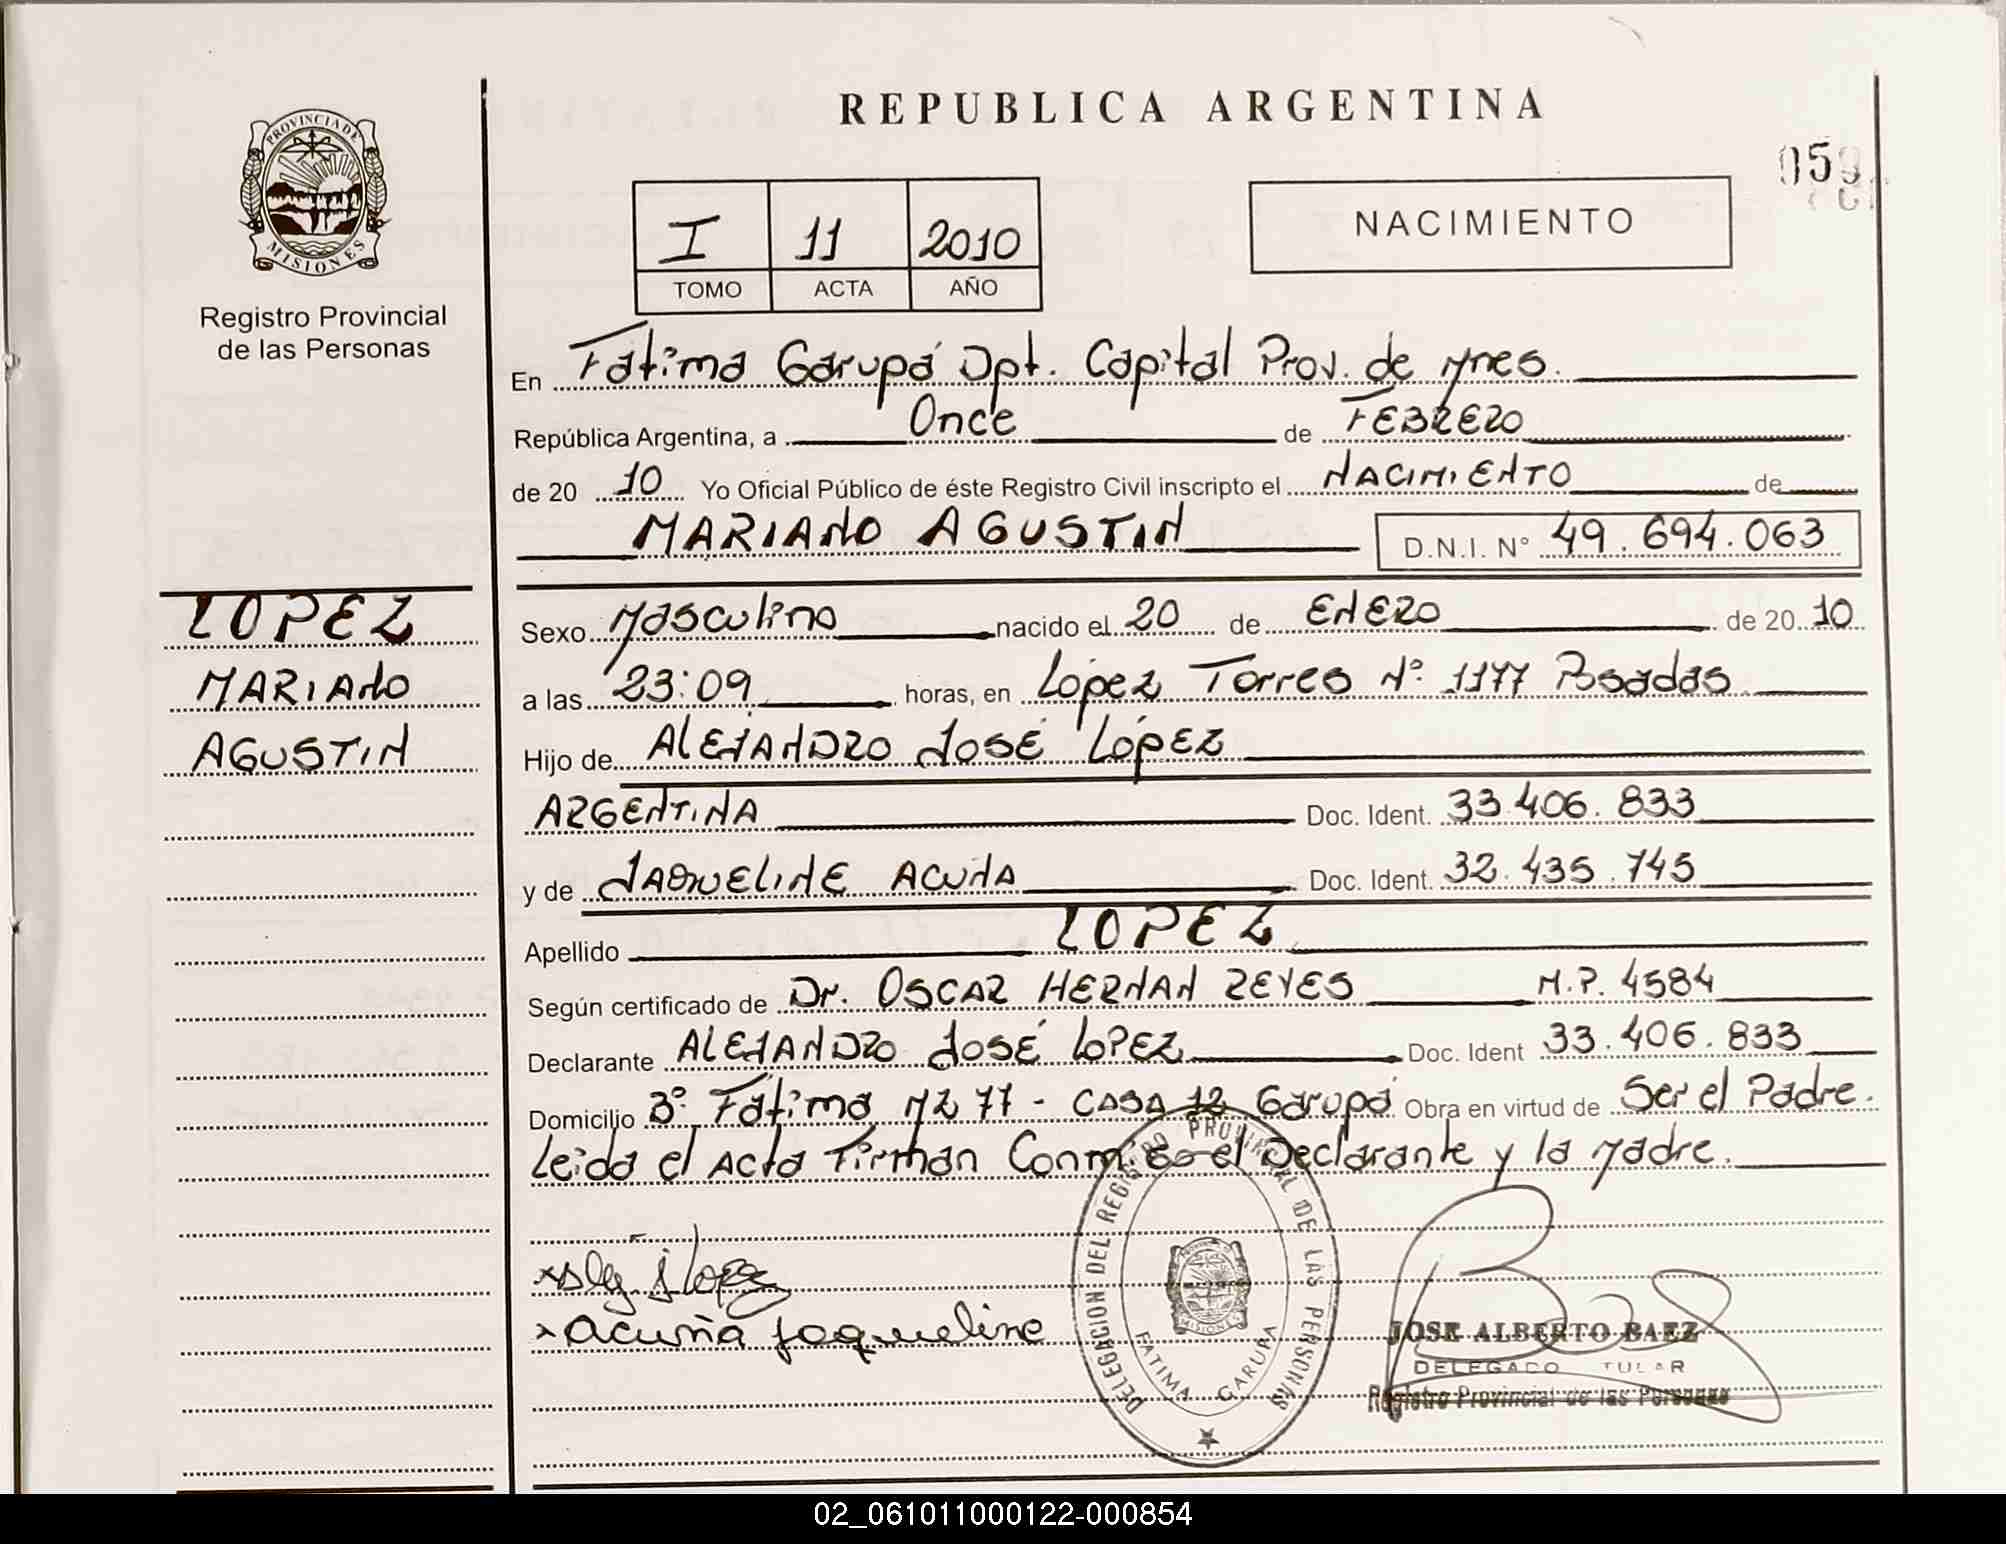 REPUBLICA ARGENTINA
PROVINCIA DE
MISIONES
Registro Provincial
de las Personas
059
I 11 2010
TOMO ACTA AÑO
NACIMIENTO
En Fátima Garupá Dpt. Capital Prov. de Mnes.
República Argentina, a Once de FEBRERO
de 20 10 Yo Oficial Público de éste Registro Civil inscripto el NACIMIENTO de
MARIANO AGUSTIN D.N.I. N° 49.694.063
LOPEZ
MARIANO
AGUSTIN
Sexo Masculino nacido el 20 de ENERO de 20 10
a las 23:09 horas, en López Torres N° 1177 Posadas
Hijo de ALEJANDRO JOSÉ LópEZ
ARGENTINA Doc. Ident. 33.406.833
y de JAQUELINE ACUÑA Doc. Ident. 32.435.745
Apellido LOPEZ
Según certificado de Dr. OSCAR HERNAN REYES M.P. 4584
Declarante ALEJANDRO JOSÉ LOPEZ Doc. Ident 33.406.833
Domicilio B° Fátima MZ 77 - CASA 12 Garupá Obra en virtud de Ser el Padre.
Leida el Acta Firman Conmigo el Declarante y la Madre.
x Alej. J Lopez
x Acuña Jaqueline
DELEGACION DEL REGISTRO PROVINCIAL DE LAS PERSONAS
FATIMA GARUPA
JOSE ALBERTO BAEZ
DELEGADO TULAR
Registro Provincial de las Personas
02_061011000122-000854